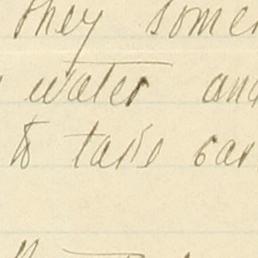 They some
water and
to take car